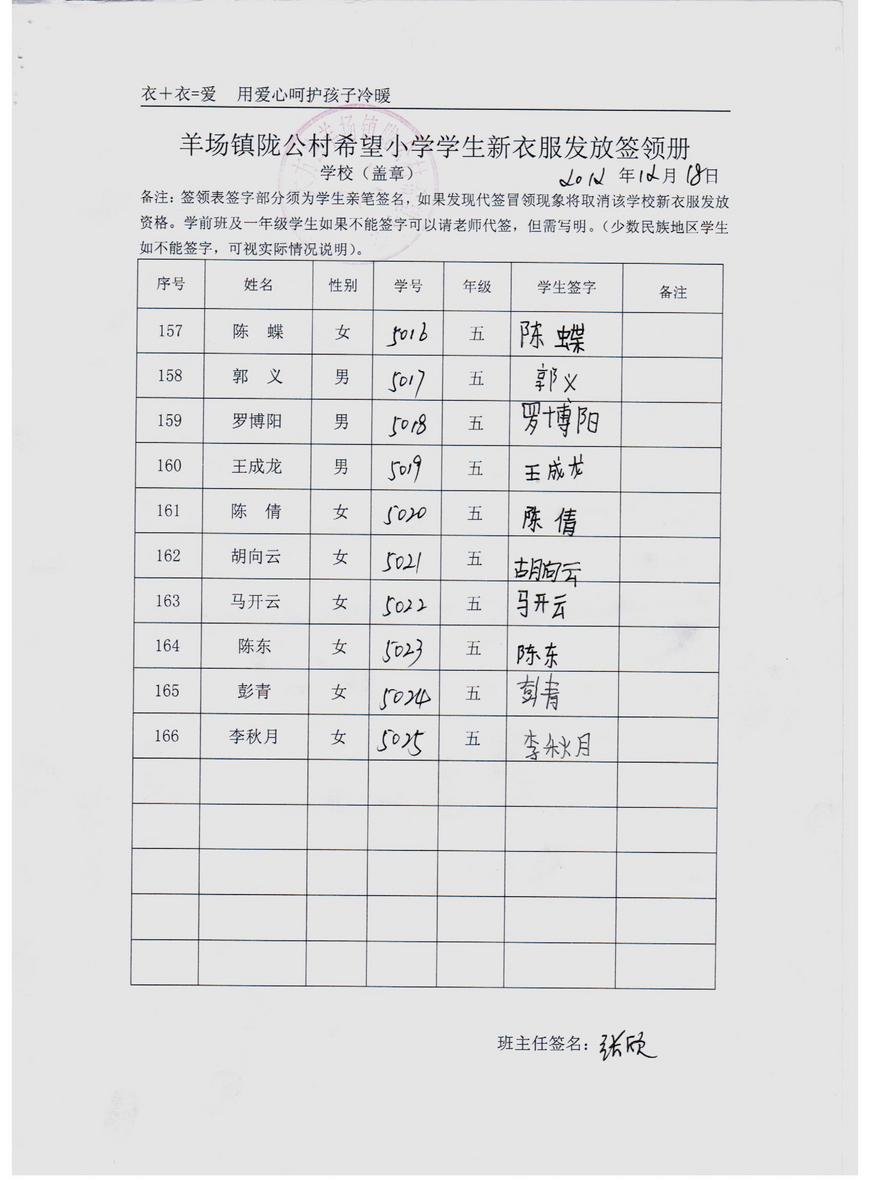 衣＋衣=爱　用爱心呵护孩子冷暖
羊场镇陇公村希望小学学生新衣服发放签领册
学校（盖章）　2012 年12月18日
备注：签领表签字部分须为学生亲笔签名，如果发现代签冒领现象将取消该学校新衣服发放
资格。学前班及一年级学生如果不能签字可以请老师代签，但需写明。（少数民族地区学生
如不能签字，可视实际情况说明）。
序号 姓名 性别 学号 年级 学生签字 备注
157 陈　蝶 女 5016 五 陈 蝶
158 郭　义 男 5017 五 郭义
159 罗博阳 男 5018 五 罗博阳
160 王成龙 男 5019 五 王成龙
161 陈　倩 女 5020 五 陈 倩
162 胡向云 女 5021 五 胡向云
163 马开云 女 5022 五 马开云
164 陈东 女 5023 五 陈东
165 彭青 女 5024 五 彭青
166 李秋月 女 5025 五 李秋月
班主任签名：张欣